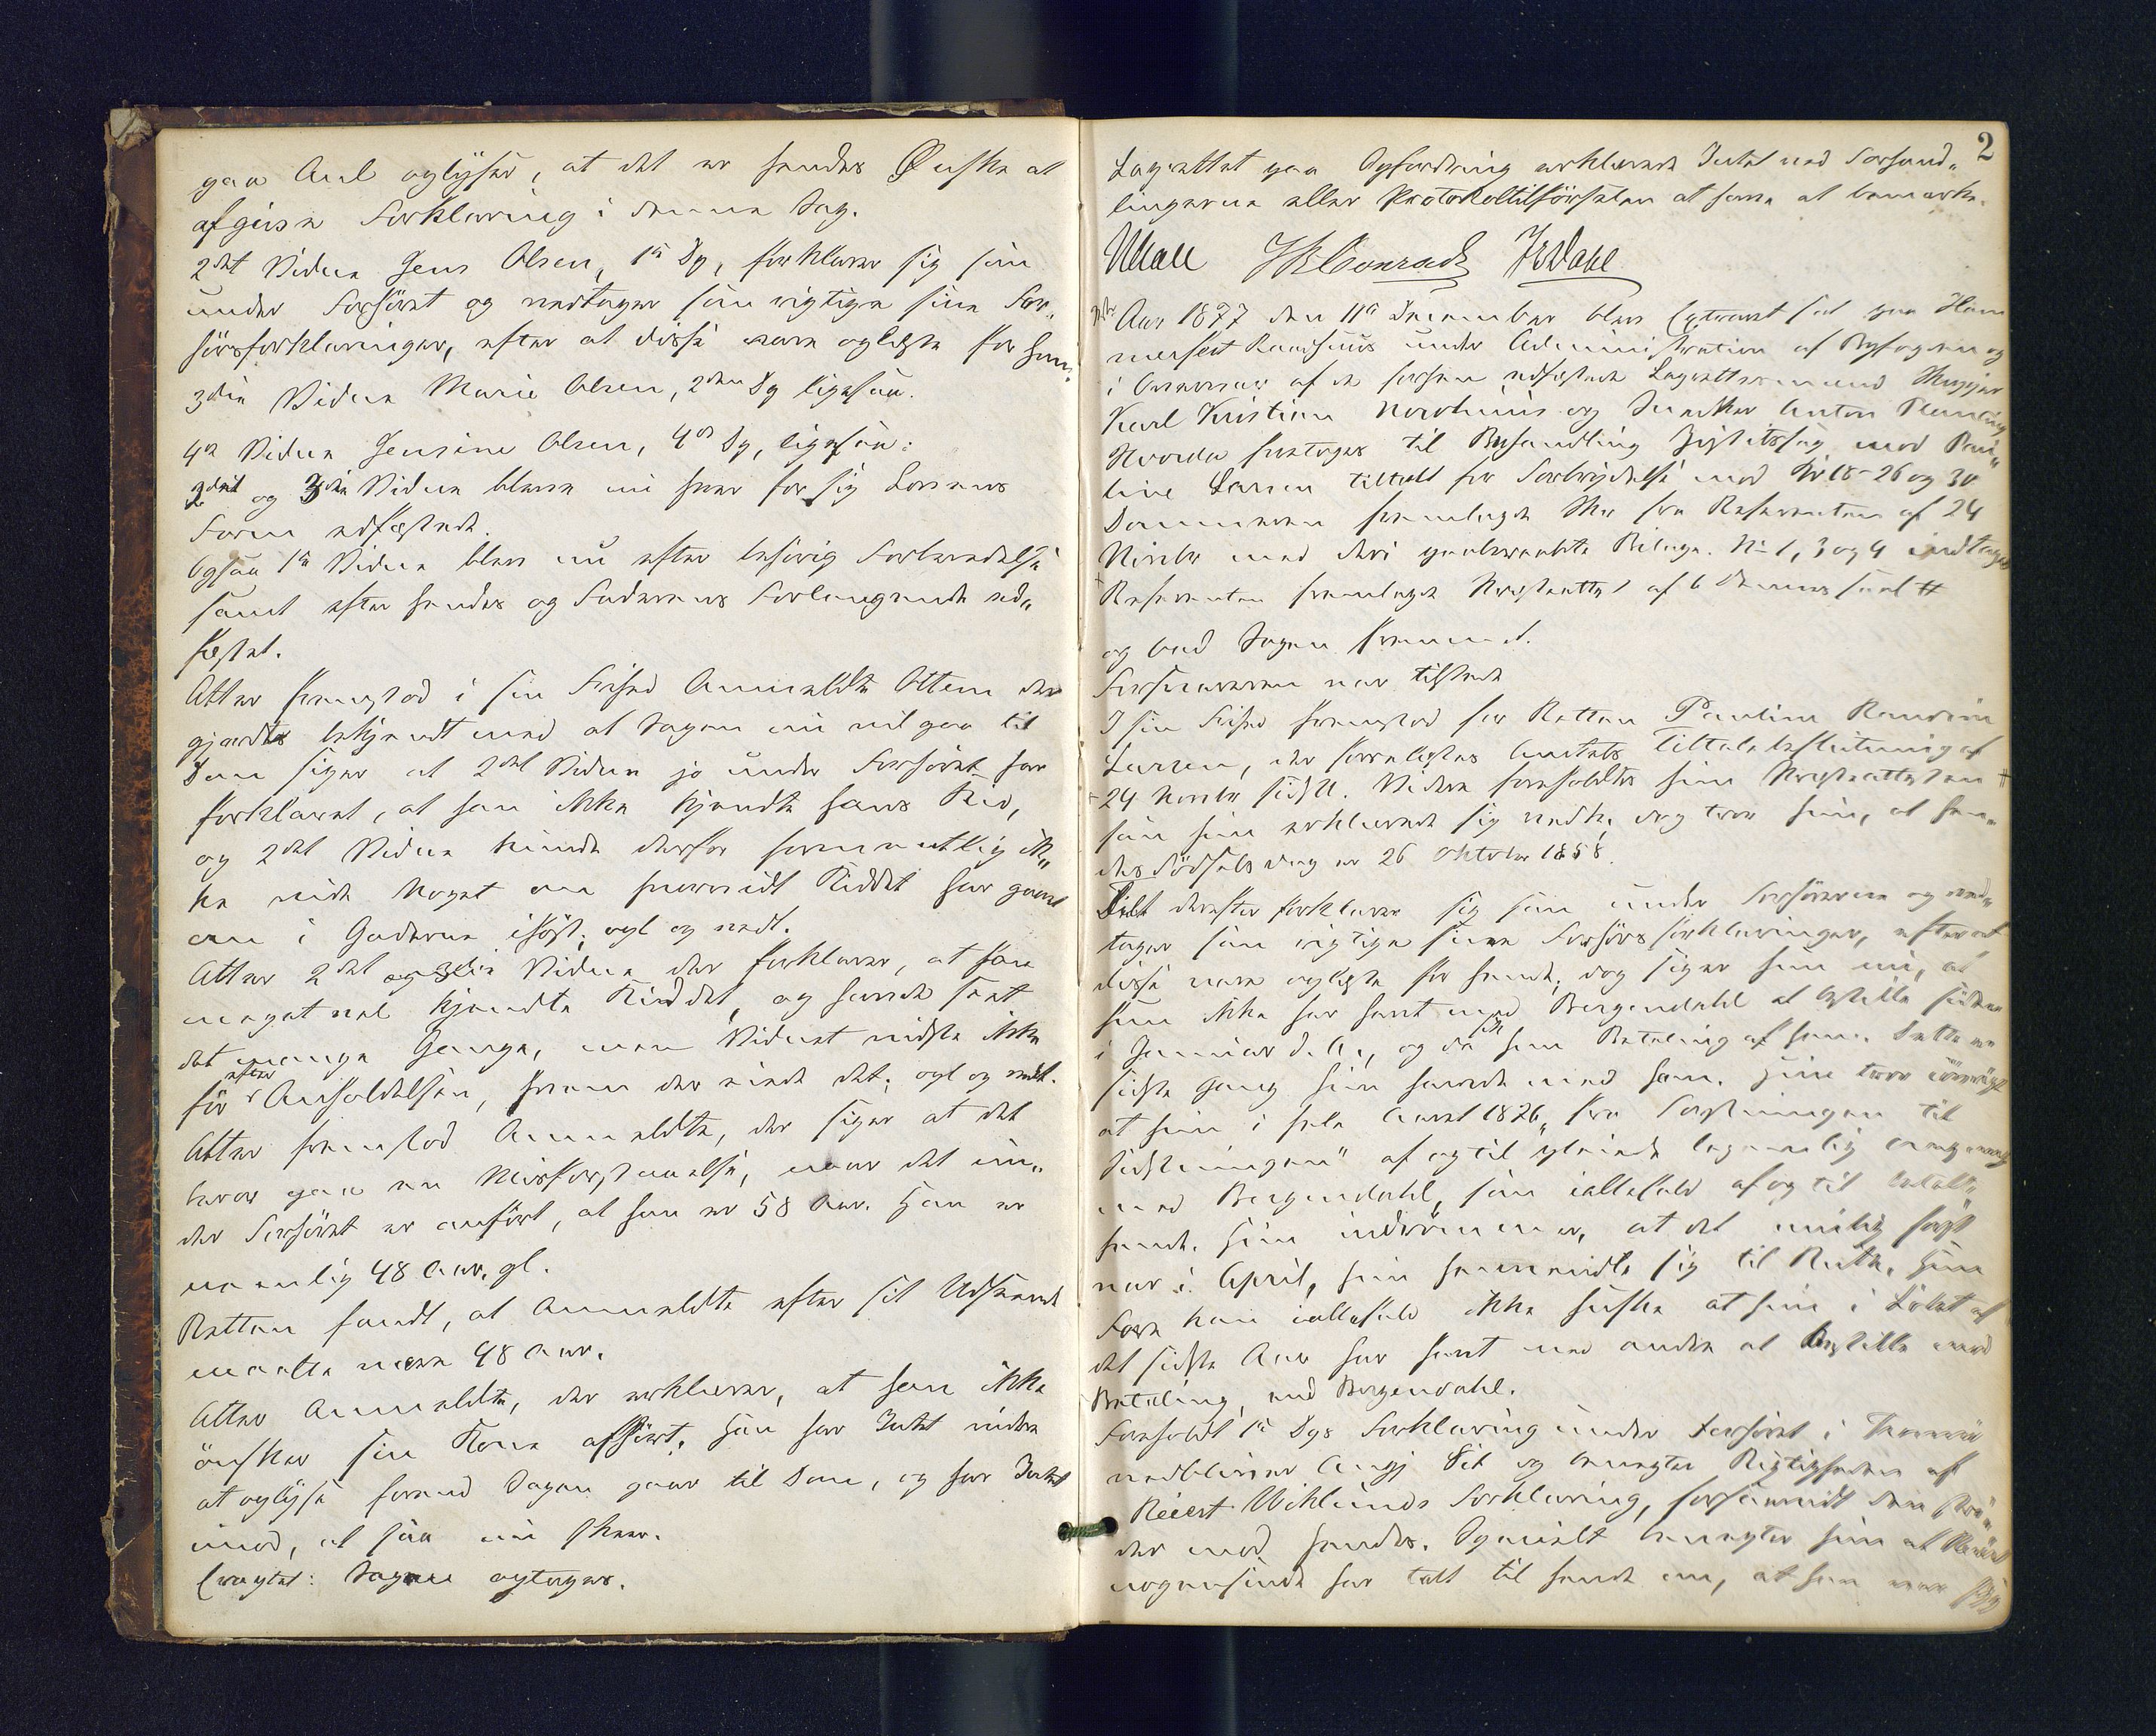 paa Anl oplyser, at det er hendes Ønske at
afgive Forklaring i denne Sag.
2det Vidne Jens Olsen, 1ste Dg, forklarer sig som
under Forhöret og vedtager som rigtige sine For„
hörsforklaringer, efter at disse vare oplæste for ham.
3die Vidne Marie Olsen, 2den Dg ligesaa.
4de Vidne Jensine Olsen, 4de Dg, ligesaa:
2det og 3die Vidne bleve nu hver for sig Lovens
Form edfæstede.
Ogsaa 1ste Vidne blev nu efter behörig Forberedelse
samt efter hendes og Faderens Forlangende ed„
fæstet.
Atter fremstod i sin Frihed Anmeldte Ottem der
gjordes bekjendt med at Sagen nu vil gaa til
Dom siger at 2det Vidne jo under Forhöret har
forklaret, at han ikke kjendte hans Kid,
og 2det Vidne kunde derfor formentlig ik„
ke vide Noget om hvorvidt Kiddet har gaaet
om i Gaderne ihöst; opl og vedt.
Atter 2det og 3die Vidne der forklarer, at han
meget vel kjendte Kiddet, og havde seet
det mange Gange, men Vidnet vidste ikke
för efter Anholdelsen, hvem der eiede det; opl og vedt.
Atter fremstod Anmeldte, der siger at det
beror paa en Misforstaaelse, naar det un„
der Forhöret er anfört, at han er 58 Aar. Han er
nemlig 48 Aar. gl.
Retten fandt, at Anmeldte efter sit Udseende
maatte være 48 Aar.
Atter Anmeldte, der erklærer, at han ikke
önsker sin Kone afhört. Han har Intet videre
at oplyse forend Sagen gaar til Dom, og har Intet
imod, at saa nu skeer.
Eragtet: Sagen optages.
2
Lagrettet paa Opfordring erklærede Intet ved Forhand„
lingerne eller Protokoltilförselen at have at bemærke.
JBConrad
Aar 1877 den 11te December blev Extraret sat paa Ham
merfest Raadhuus under Administration af Byfogden og
i Overvær af de forhen edfæstede Lagrettesmænd
Karl Kristian og Snedker Anton
foretoges til Behandling Justitssag mod Pau„
line Larsen tiltalt for Forbrydelse mod 18-26 og 30
Dommeren fremlagde fra Referenten af 24
Novbr med deri paaberaabte Bilage. No 1, 3 og 4 indtages
Referenten fremlagde Præsteattest af 6 dennes saal #
og bad Sagen fremmet.
Forsvareren var tilstede
I sin Frihed fremstod for Retten Pauline
Larsen, der forelæstes Amtets Tiltalebeslutning af
24 Novbr sidstl. Videre foreholdtes hun Præsteattesten #
som hun erklærede sig vedk, dog tror hun, at hen„
des Födselsdag er 26 Oktober 1858.
Tilt derefter forklarer sig som under Forhörerne og ved„
tager som rigtige sine Forhörsforklaringer, efterat
disse vare oplæste for hende; dog siger hun nu, at
hun ikke har havt med Bergendahl at bestille siden
i Januar d. A., og da fik hun Betaling af ham. Dette var
sidste Gang hun havde med ham. Hun tror
at hun i hele Aaret 1876 „fra Forstningen til
Sidstningen" af og til pleiede legemlig Omgang
med Bergendahl, som iallefald af og til betalte
hende. Hun indrömmer, at det muligt först
var i April, hun henvendte sig til Ruth. Hun
kan iallefald ikke huske at hun i Löbet af
det sidste Aar har havt med andre at bestille mod
Betaling, end Bergendahl.
Foreholdt 1ste Dgs Forklaring under Forhöret i
vedbliver Angj Sit og benegter Rigtigheden af
Wiklunds Forklaring, forsaavidt den
der mod hendes. Specielt benegter hun at
nogensinde har talt til hende om, at han var